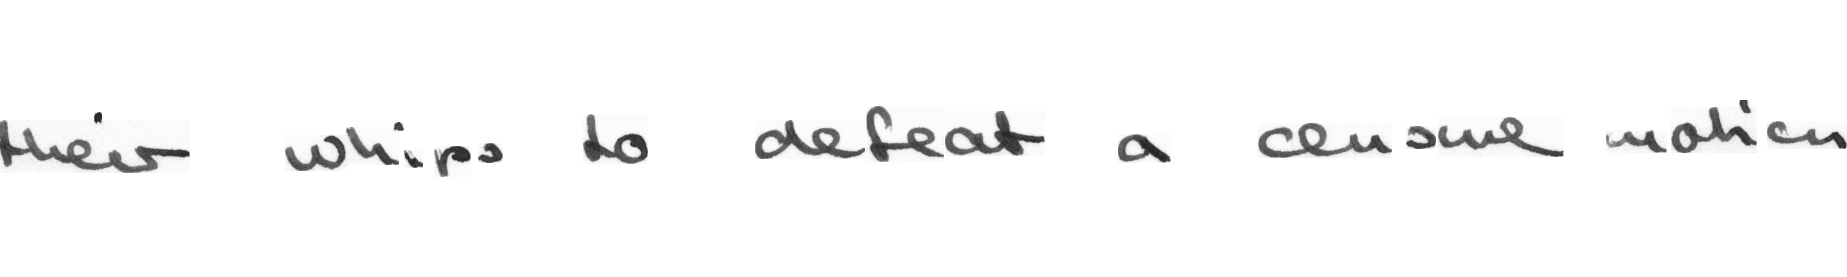 their whips to defeat a censure motion